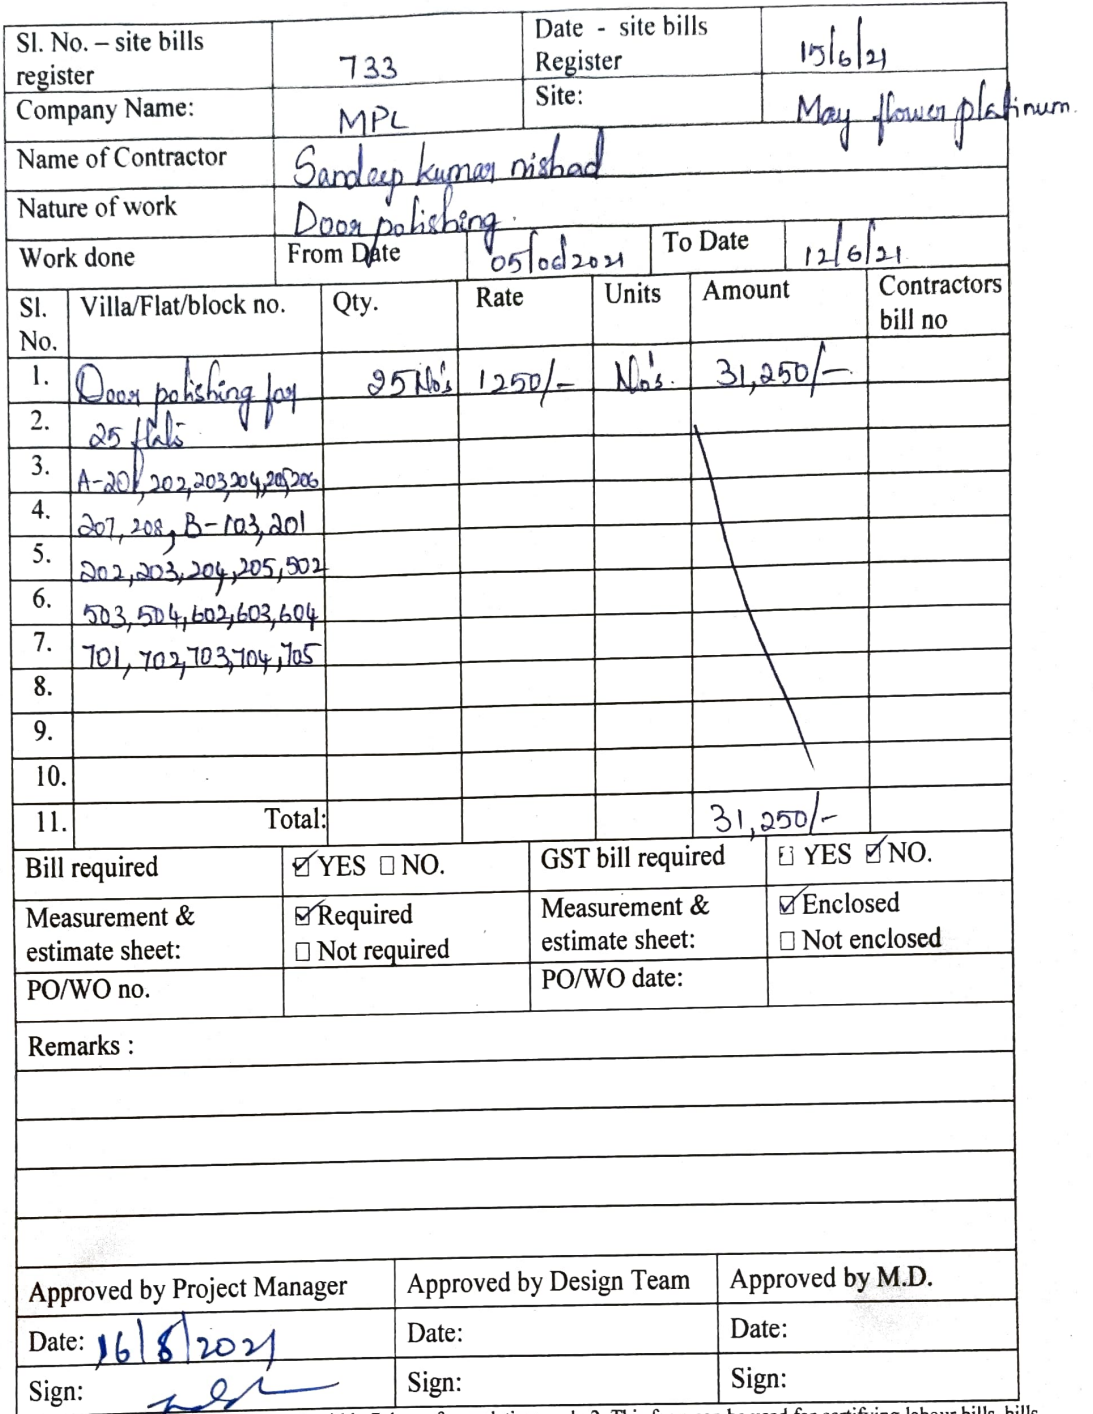 Sl. No. – site bills register 733 Date - site bills Register 15/6/21
Company Name: MPL Site: May flower platinum.
Name of Contractor Sandeep kumar nishad
Nature of work Door polishing.
Work done From Date 05/06/2021 To Date 12/6/21
Sl. No. Villa/Flat/block no. Qty. Rate Units Amount Contractors bill no
1. Door polishing for 25 No's 1250/- No's. 31,250/-
2. 25 flats
3. A-201,202,203,204,205,206
4. 207,208, B-103,201
5. 202,203,204,205,502
6. 503,504,602,603,604
7. 701,702,703,704,705
8.
9.
10.
11. Total: 31,250/-
Bill required ☑ YES □ NO. GST bill required □ YES ☑ NO.
Measurement & estimate sheet: ☑ Required □ Not required Measurement & estimate sheet: ☑ Enclosed □ Not enclosed
PO/WO no. PO/WO date:
Remarks :
Approved by Project Manager Approved by Design Team Approved by M.D.
Date: 16/8/2021 Date: Date:
Sign: Sign: Sign: